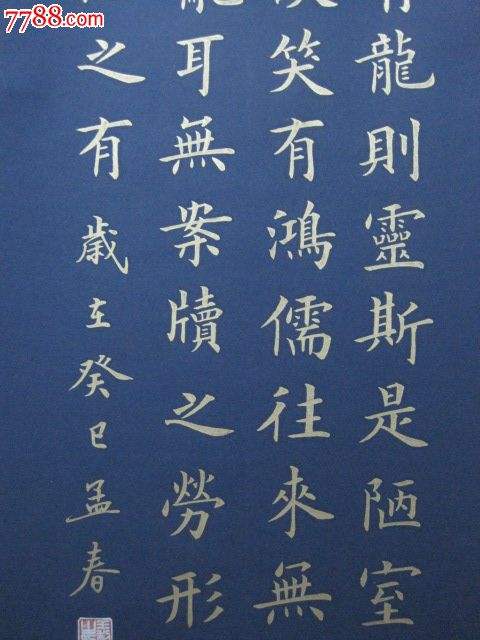 7788.com
中国收藏热线
有龍則靈斯是陋室
笑有鴻儒往來無
亂耳無案牘之勞形
之有歲在癸巳孟春